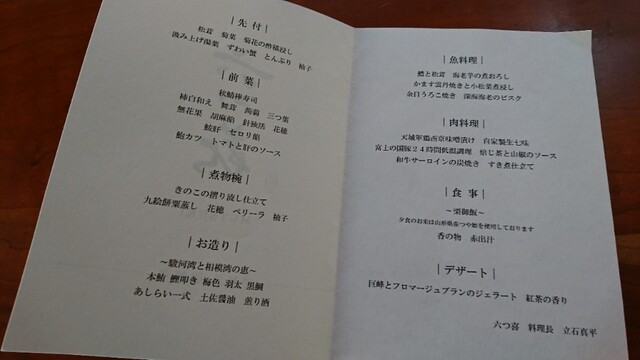 ｜先 付｜
松茸　菊菜　菊花の酢橘浸し
汲み上げ湯葉　ずわい蟹　とんぶり　柚子
｜前 菜｜
秋鯖棒寿司
柿白和え　舞茸　蒟蒻　三つ葉
無花果　胡麻餡　針独活　花穂
鮟肝　セロリ餡
鮑カツ　トマトと肝のソース
｜煮物椀｜
きのこの擂り流し仕立て
九絵餅粟蒸し　花穂　ベリーラ　柚子
｜お造り｜
～駿河湾と相模湾の恵～
本鮪　鰹叩き　梅色　羽太　黒鯛
あしらい一式　土佐醤油　煎り酒
｜魚料理｜
鱧と松茸　海老芋の煮おろし
かます雲丹焼きと小松菜煮浸し
金目うろこ焼き　深海海老のビスク
｜肉料理｜
天城軍鶏西京味噌漬け　自家製生七味
富士の国豚２４時間低温調理　焙じ茶と山椒のソース
和牛サーロインの炭焼き　すき煮仕立て
｜食 事｜
～栗御飯～
夕食のお米は山形県産つや姫を使用しております
香の物　赤出汁
｜デザート｜
巨峰とフロマージュブランのジェラート　紅茶の香り
六つ喜　料理長　立石真平